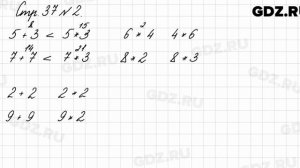 GDZ.RU
Стр. 37 № 2.
8 15 2
5 + 3 < 5 * 3 6 * 4 4 * 6
14 21
7 + 7 < 7 * 3 8 * 2 8 * 3
2 + 2 2 * 2
9 + 9 9 * 2
GDZ.RU